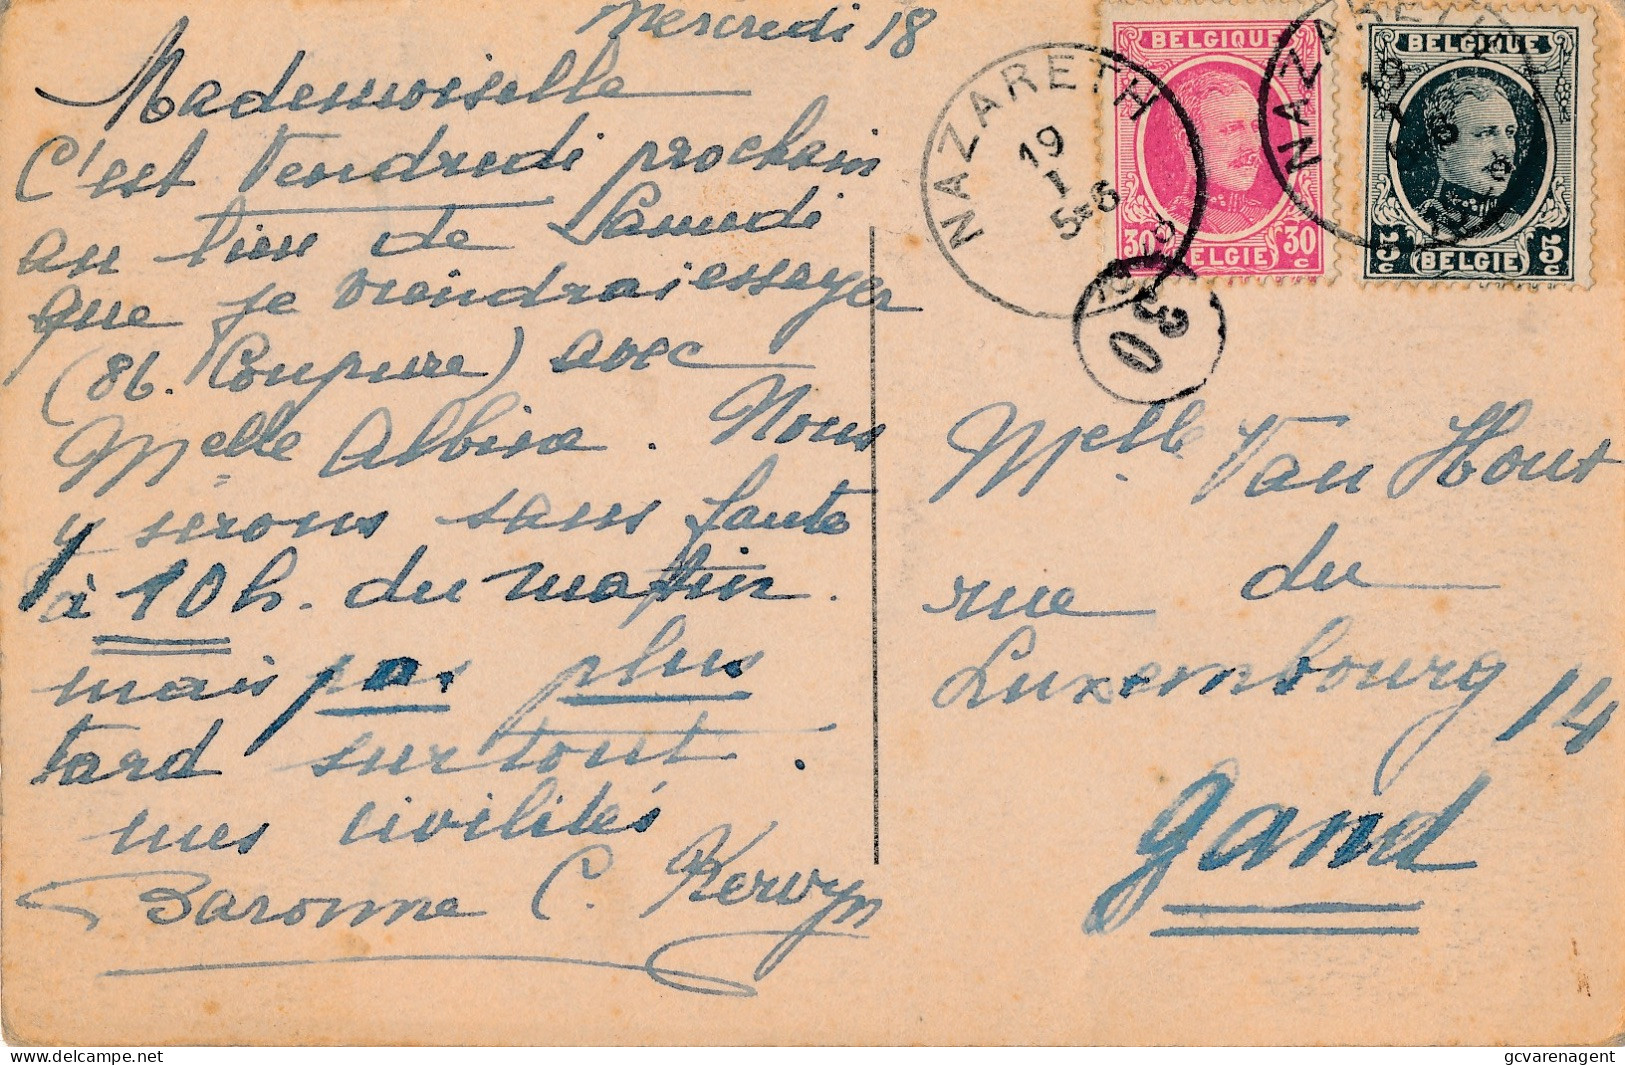 Mercredi 18
Mademoiselle
C'est Vendredi prochain
au lieu de Samedi
que je viendrai essayer
(86. Coupure) avec
Melle Albina. Nous
y serons sans faute
à 10 h. du matin.
mais pas plus
tard surtout.
mes civilités
Baronne C. Kervyn
NAZARETH
19
I
5-6
30
BELGIQUE
30c 30c
BELGIE
NAZARETH
19
BELGIQUE
5c 5c
(BELGIE)
Melle Van Hout
rue du
Luxembourg 14
Gand
delcampe.net
gcvarenagent